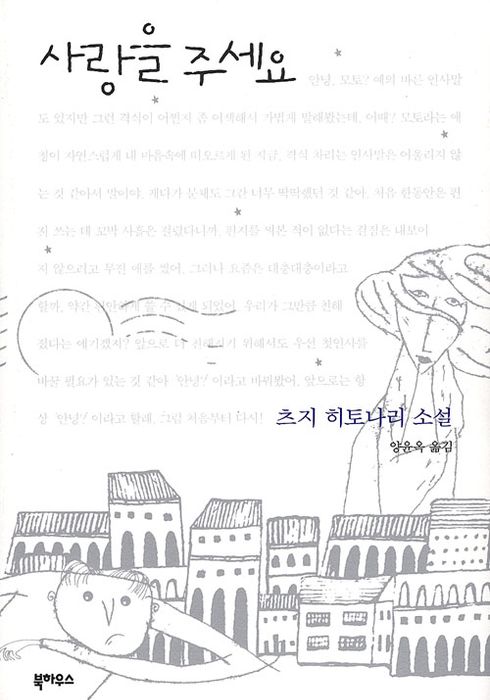 사랑을 주세요
안녕, 모토? 예의 바른 인사말
도 있지만 그런 격식이 어쩐지 좀 어색해서 가볍게 말해봤는데, 어때? 모토라는 애
칭이 자연스럽게 내 마음속에 떠오르게 된 지금, 격식 차리는 인사말은 어울리지 않
는 것 같아서 말이야. 게다가 문체도 그간 너무 딱딱했던 것 같아. 처음 한동안은 편
지 쓰는 데 꼬박 사흘은 걸렸다니까. 편지를 써본 적이 없다는 결점은 내보이
지 않으려고 무진 애를 썼어. 그러나 요즘은 대충대충이라고
할까, 약간 편안하게 쓸 수 있게 되었어. 우리가 그만큼 친해
졌다는 얘기겠지? 앞으로 더 친해지기 위해서도 우선 첫인사를
바꿀 필요가 있는 것 같아 '안녕?'이라고 바꿔봤어. 앞으로는 항
상 '안녕?'이라고 할래. 그럼 처음부터 다시!
츠지 히토나리 소설
양윤옥 옮김
북하우스